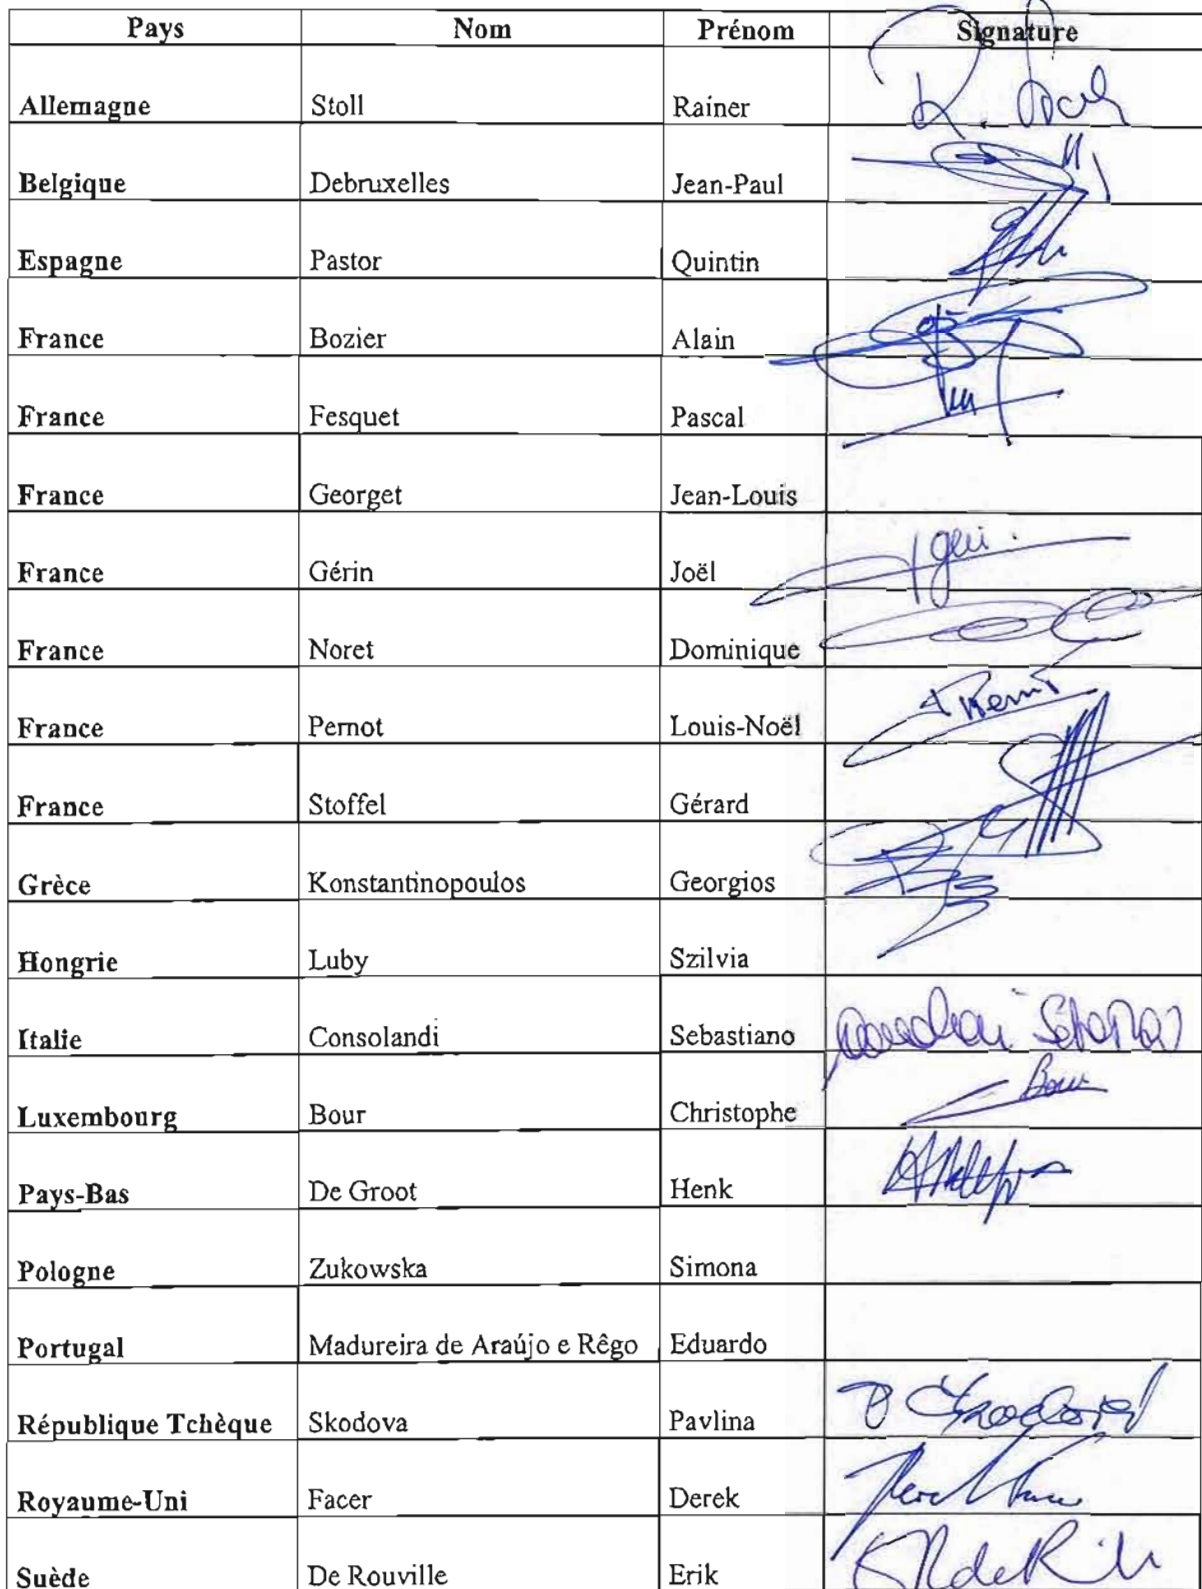 Pays Nom Prénom Signature
Allemagne Stoll Rainer
Belgique Debruxelles Jean-Paul
Espagne Pastor Quintin
France Bozier Alain
France Fesquet Pascal
France Georget Jean-Louis
France Gérin Joël
France Noret Dominique
France Pernot Louis-Noël
France Stoffel Gérard
Grèce Konstantinopoulos Georgios
Hongrie Luby Szilvia
Italie Consolandi Sebastiano
Luxembourg Bour Christophe Bour
Pays-Bas De Groot Henk
Pologne Zukowska Simona
Portugal Madureira de Araújo e Rêgo Eduardo
République Tchèque Skodova Pavlina
Royaume-Uni Facer Derek
Suède De Rouville Erik